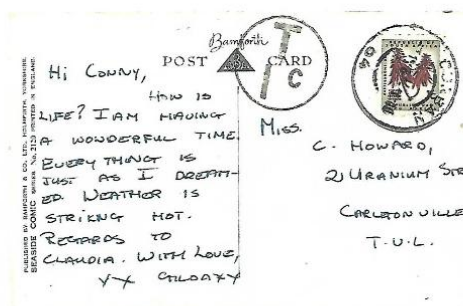 PUBLISHED BY BAMFORTH & CO. LTD., HOLMFIRTH, YORKSHIRE.
SEASIDE COMIC SERIES No. PRINTED IN ENGLAND.
Bamforth
POST CARD
T
C
DURBAN
Hi Conny,
How is
LIFE? I AM HAVING
A WONDERFUL TIME.
EVERYTHING IS
JUST AS I DREAM-
ED. WEATHER IS
STRIKNG HOT.
REGARDS TO
CLAUDIA. WITH LOVE,
Miss.
C. HOWARD,
2 URANIUM STR
CARLTONVILLE
T.V.L.